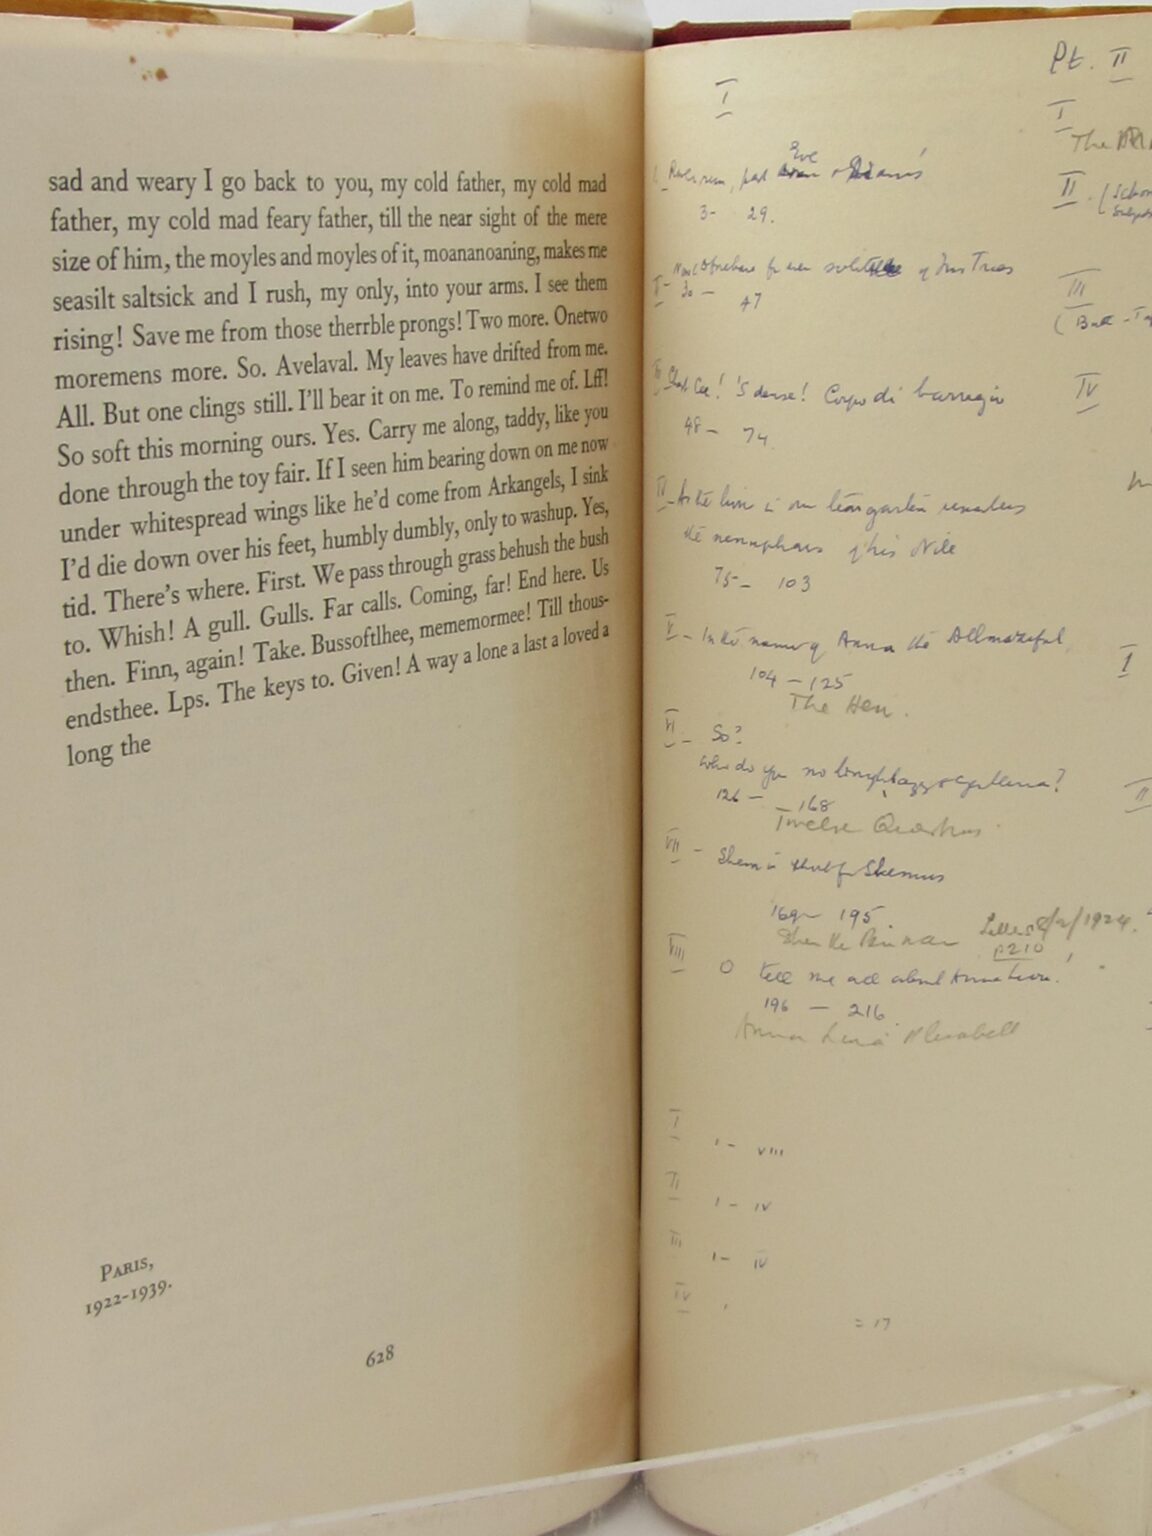 sad and weary I go back to you, my cold father, my cold mad
father, my cold mad feary father, till the near sight of the mere
size of him, the moyles and moyles of it, moananoaning, makes me
seasilt saltsick and I rush, my only, into your arms. I see them
rising! Save me from those therrble prongs! Two more. Onetwo
moremens more. So. Avelaval. My leaves have drifted from me.
All. But one clings still. I'll bear it on me. To remind me of. Lff!
So soft this morning ours. Yes. Carry me along, taddy, like you
done through the toy fair. If I seen him bearing down on me now
under whitespread wings like he'd come from Arkangels, I sink
I'd die down over his feet, humbly dumbly, only to washup. Yes,
tid. There's where. First. We pass through grass behush the bush
to. Whish! A gull. Gulls. Far calls. Coming, far! End here. Us
then. Finn, again! Take. Bussoftlhee, mememormee! Till thous-
endsthee. Lps. The keys to. Given! A way a lone a last a loved a
long the
PARIS,
1922-1939.
628
I
Riverrun, past Eve
3- 29.
II
of Iris Trees
30 — 47
III 'S dense! Corpo di barragio
48 — 74
IV - As the lion in our teargarten remembers
the nenuphars of his Nile
75 — 103
V - In the name of Anna the Allmaziful,
104 — 125
The Hen.
VI - So?
Who do you no
126 — 168
Twelve Questions
VII - Shem is short for Shemus
169 — 195
Shem the Penman Letters 8/2/1924.
p210
VIII O tell me all about Anna Livia!
196 — 216
Anna Livia Plurabell
I 1 - VIII
II 1 - IV
III 1 - IV
IV
= 17
Pt. II
I
The
II
III
IV
I
II